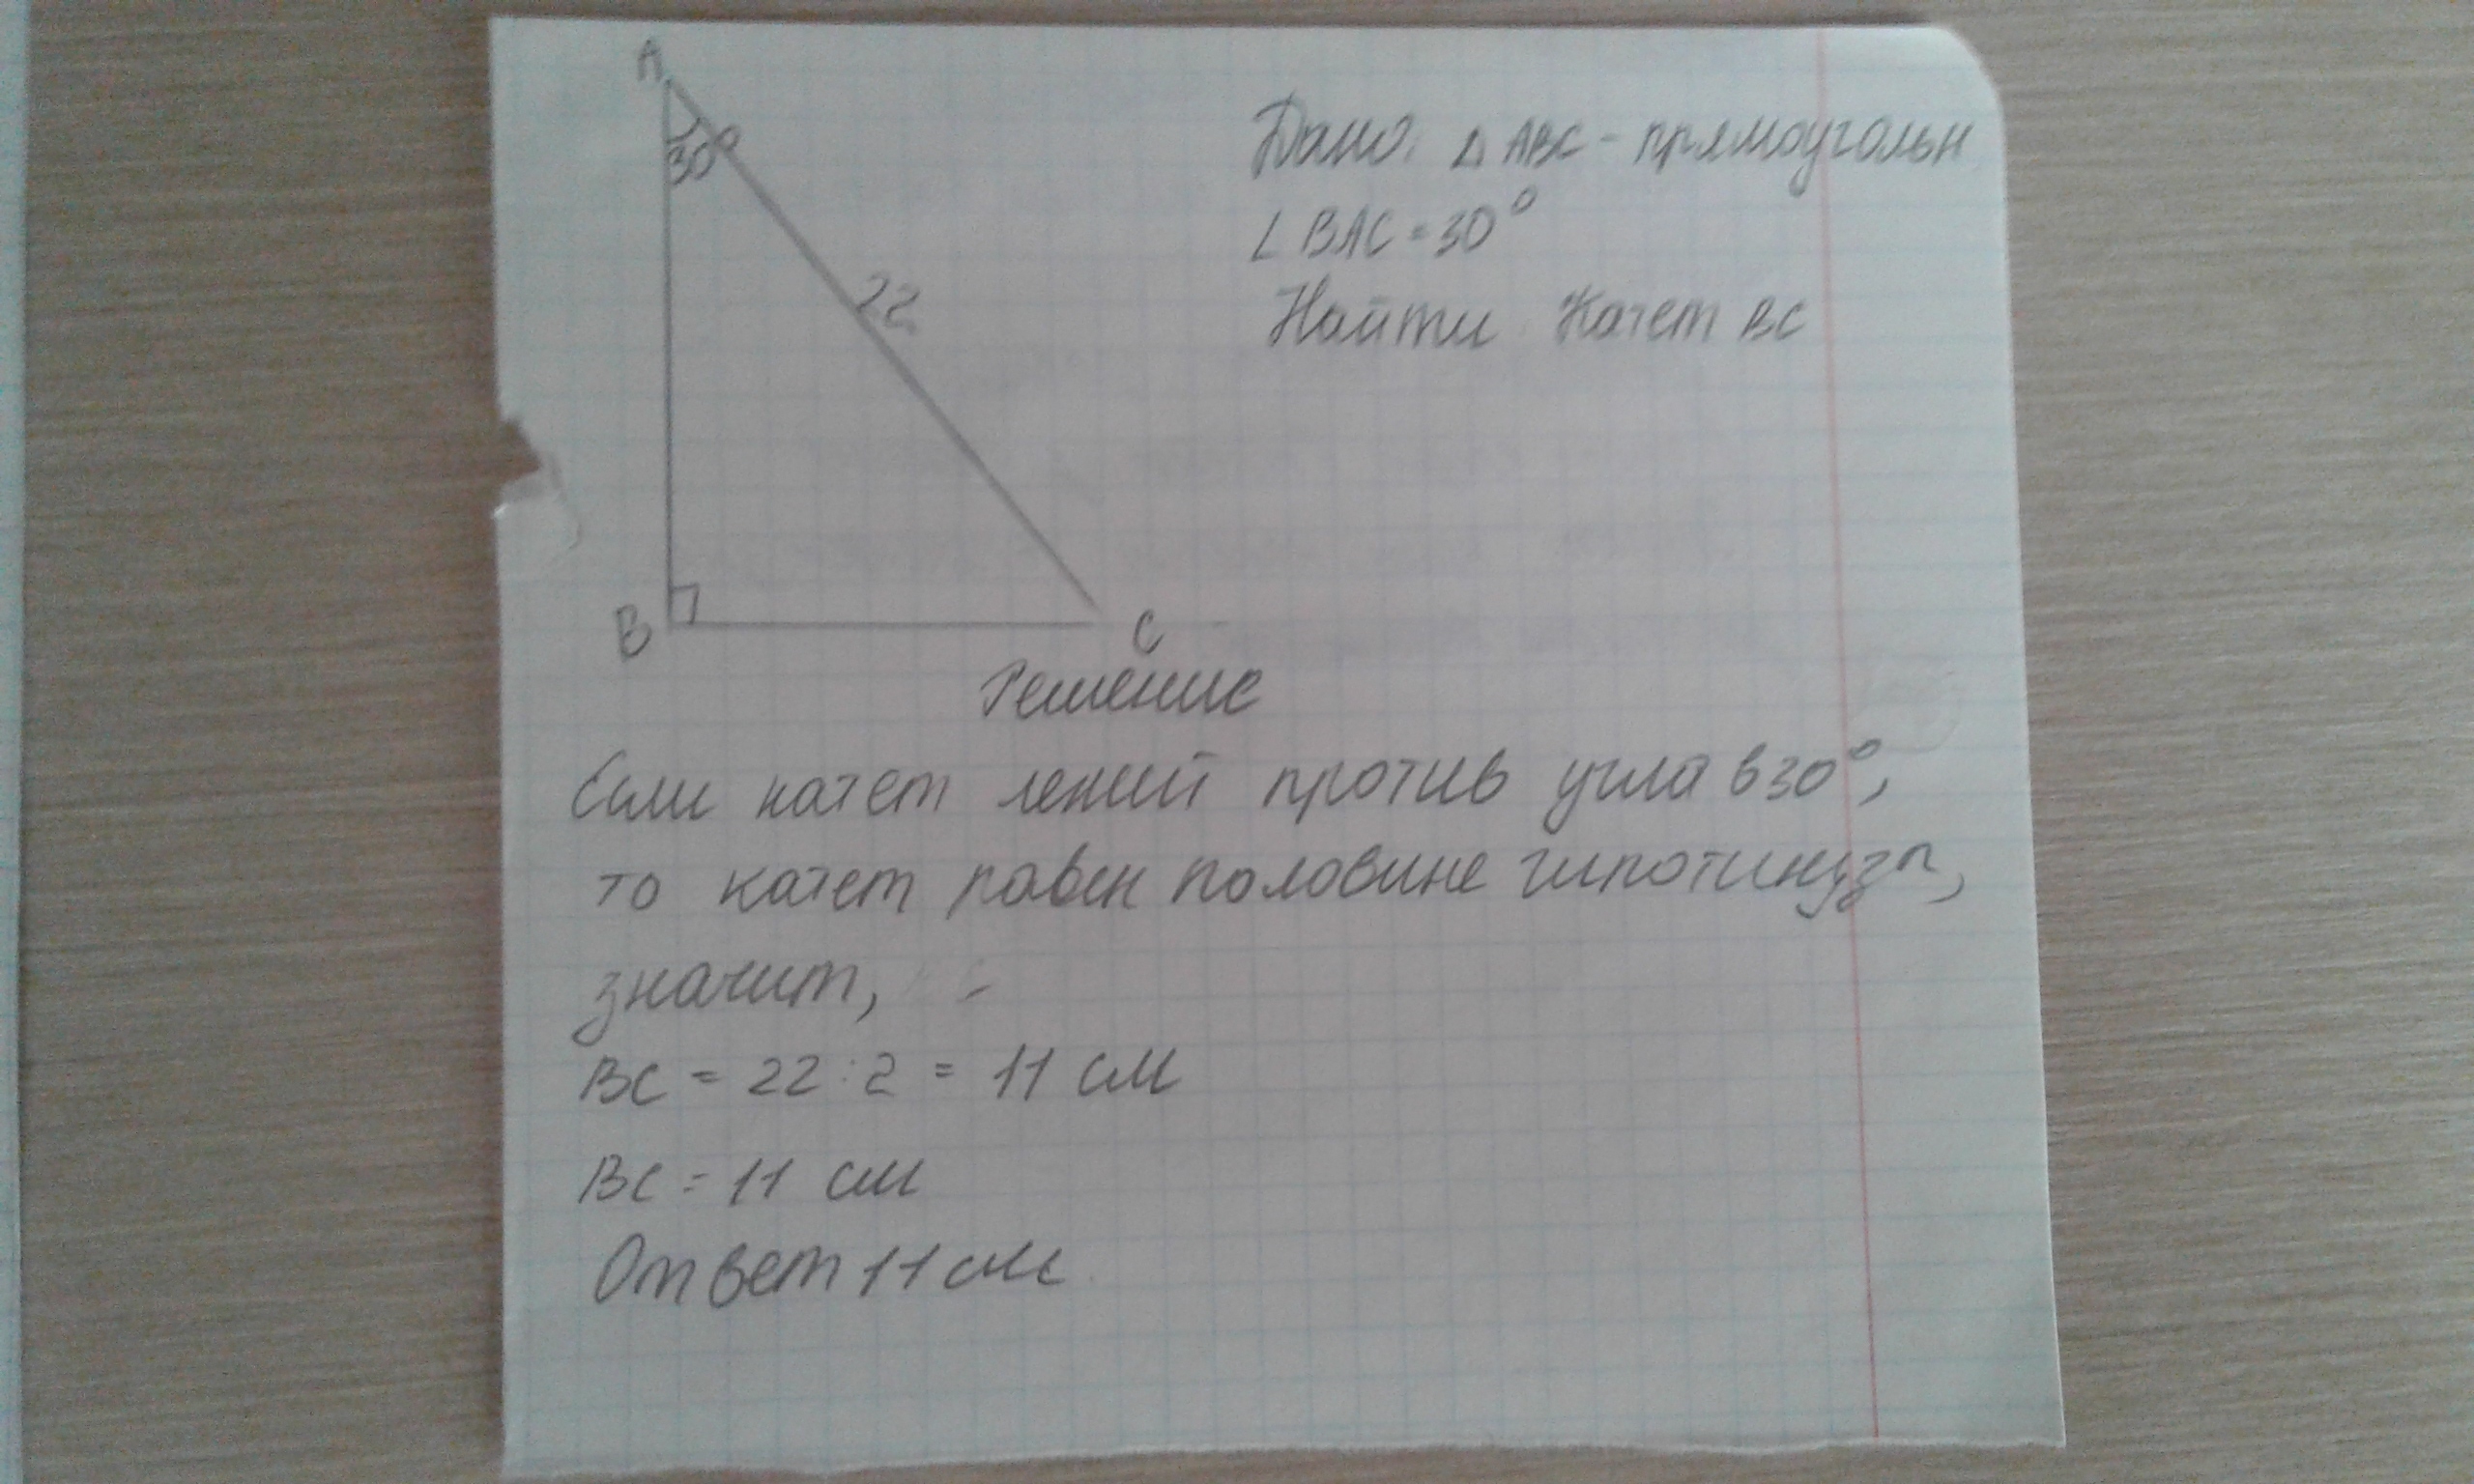 A
30°
22
B
C
Дано: Δ ABC - прямоугольн
∠ BAC = 30°
Найти Катет BC
Решение
Если катет лежит против угла в 30°,
то катет равен половине гипотинузы,
значит,
BC = 22 : 2 = 11 см
BC = 11 см
Ответ 11 см